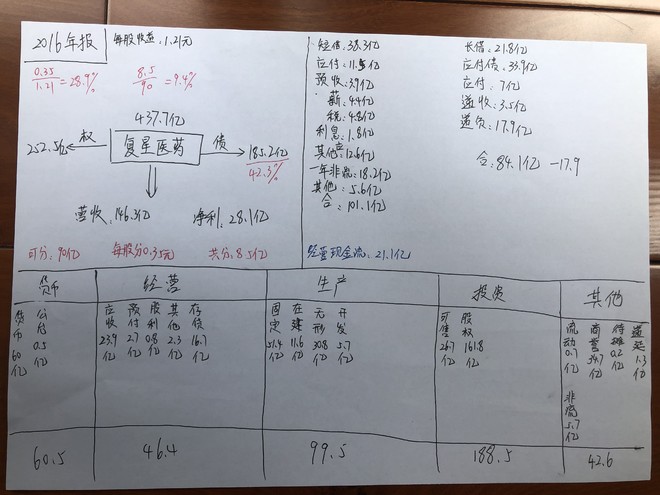 2016年报
每股收益:1.21元
0.35/1.21=28.9%
8.5/90=9.4%
437.7亿
252.5亿
权
复星医药
债
185.2亿
42.3%
营收:146.3亿
净利:28.1亿
可分:90亿
每股分0.35元
共分:8.5亿
短借:38.3亿
应付:11.5亿
预收:3.9亿
薪:4.4亿
税:4.8亿
利息:1.8亿
其他应:12.6亿
一年非流:18.2亿
其他:5.6亿
合:101.1亿
经营现金流:21.1亿
长借:21.8亿
应付债:33.9亿
应付:7亿
递收:3.5亿
递负:17.9亿
合:84.1亿 -17.9
货币
货币60亿
公允0.5亿
60.5
经营
应收23.9亿
预付2.7亿
股利0.8亿
其他2.3亿
存货16.7亿
46.4
生产
固定51.4亿
在建11.6亿
无形30.8亿
开发5.7亿
99.5
投资
可售26.7亿
股权161.8亿
188.5
其他
流动0.7亿
商誉34.7亿
待摊0.2亿
递延1.3亿
非流5.7亿
42.6